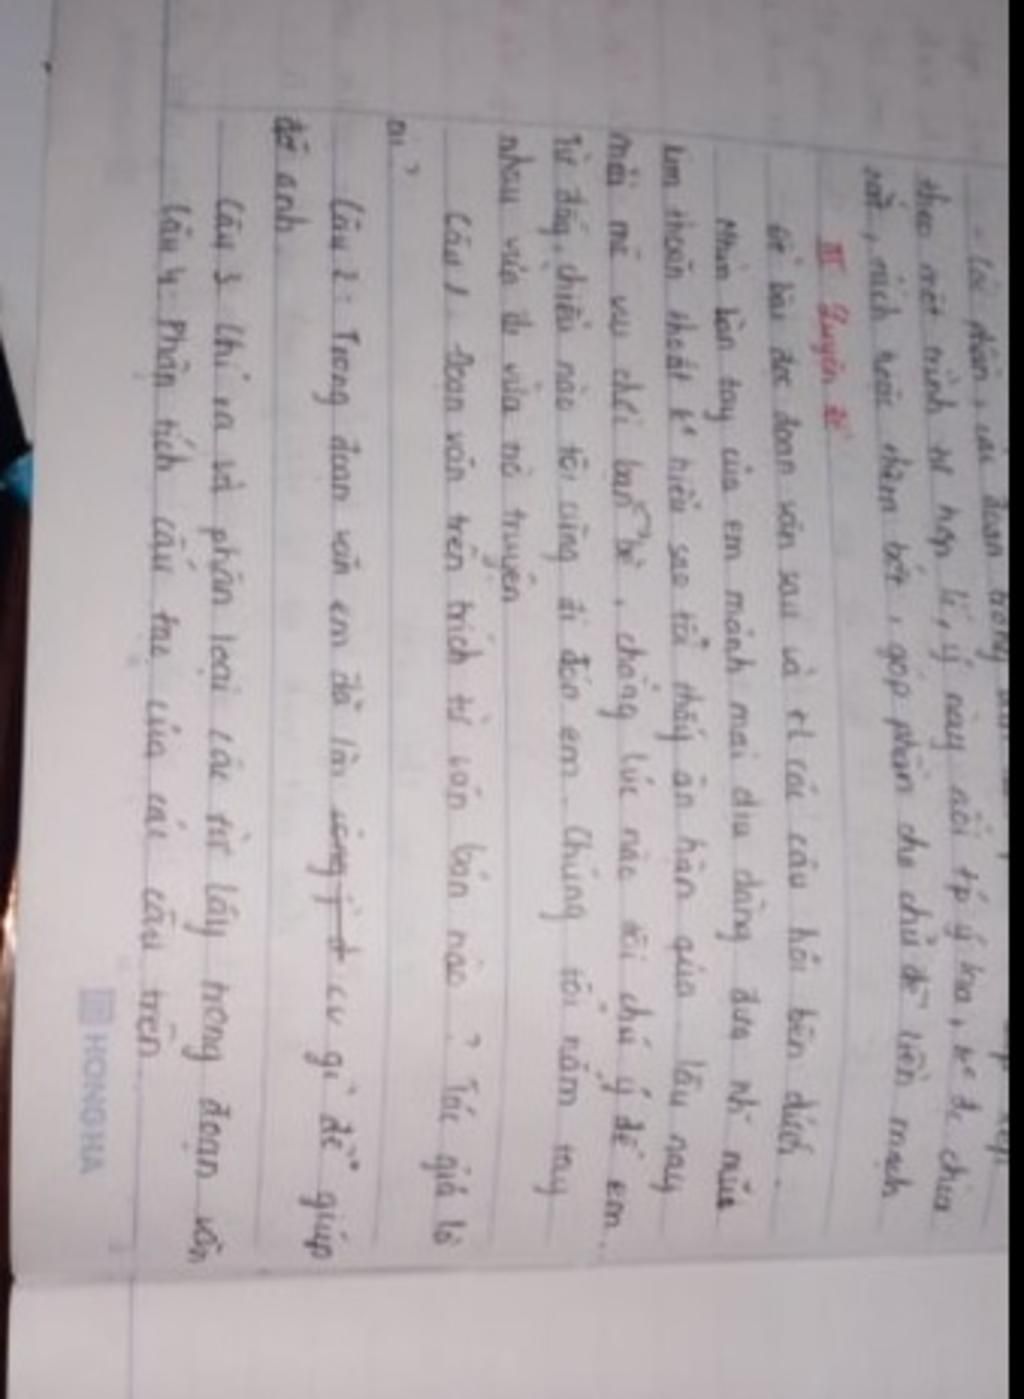 - Các đoạn, câu đoạn trong
theo một trình tự hợp lí, ý này nối tp ý kia, kº đc chia
cắt, rách hoặc thêm bớt, góp phần cho chủ đề liền mạch
III Luyện đề
Đề bài đọc đoạn văn sau và tl các câu hỏi bên dưới.
Nhìn bàn tay của em mảnh mai dịu dàng đưa nhỉ mũi
kim thoăn thoắt kº hiểu sao tôi thấy ân hận quá. Lâu nay
mải mê vui chơi bạn bè, chẳng lúc nào tôi chú ý đế em...
Từ đấy, chiều nào tôi cũng đi đón em. Chúng tôi nắm tay
nhau vừa đi vừa trò truyện
Câu 1. Đoạn văn trên trích từ văn bản nào? Tác giả là
ai?
Câu 2: Trong đoạn văn em đã làm cv gì để giúp
đỡ anh
Câu 3 Chỉ ra và phân loại các từ láy trong đoạn văn
Câu 4: Phân tích cấu tạo của các câu trên.
HONG HA